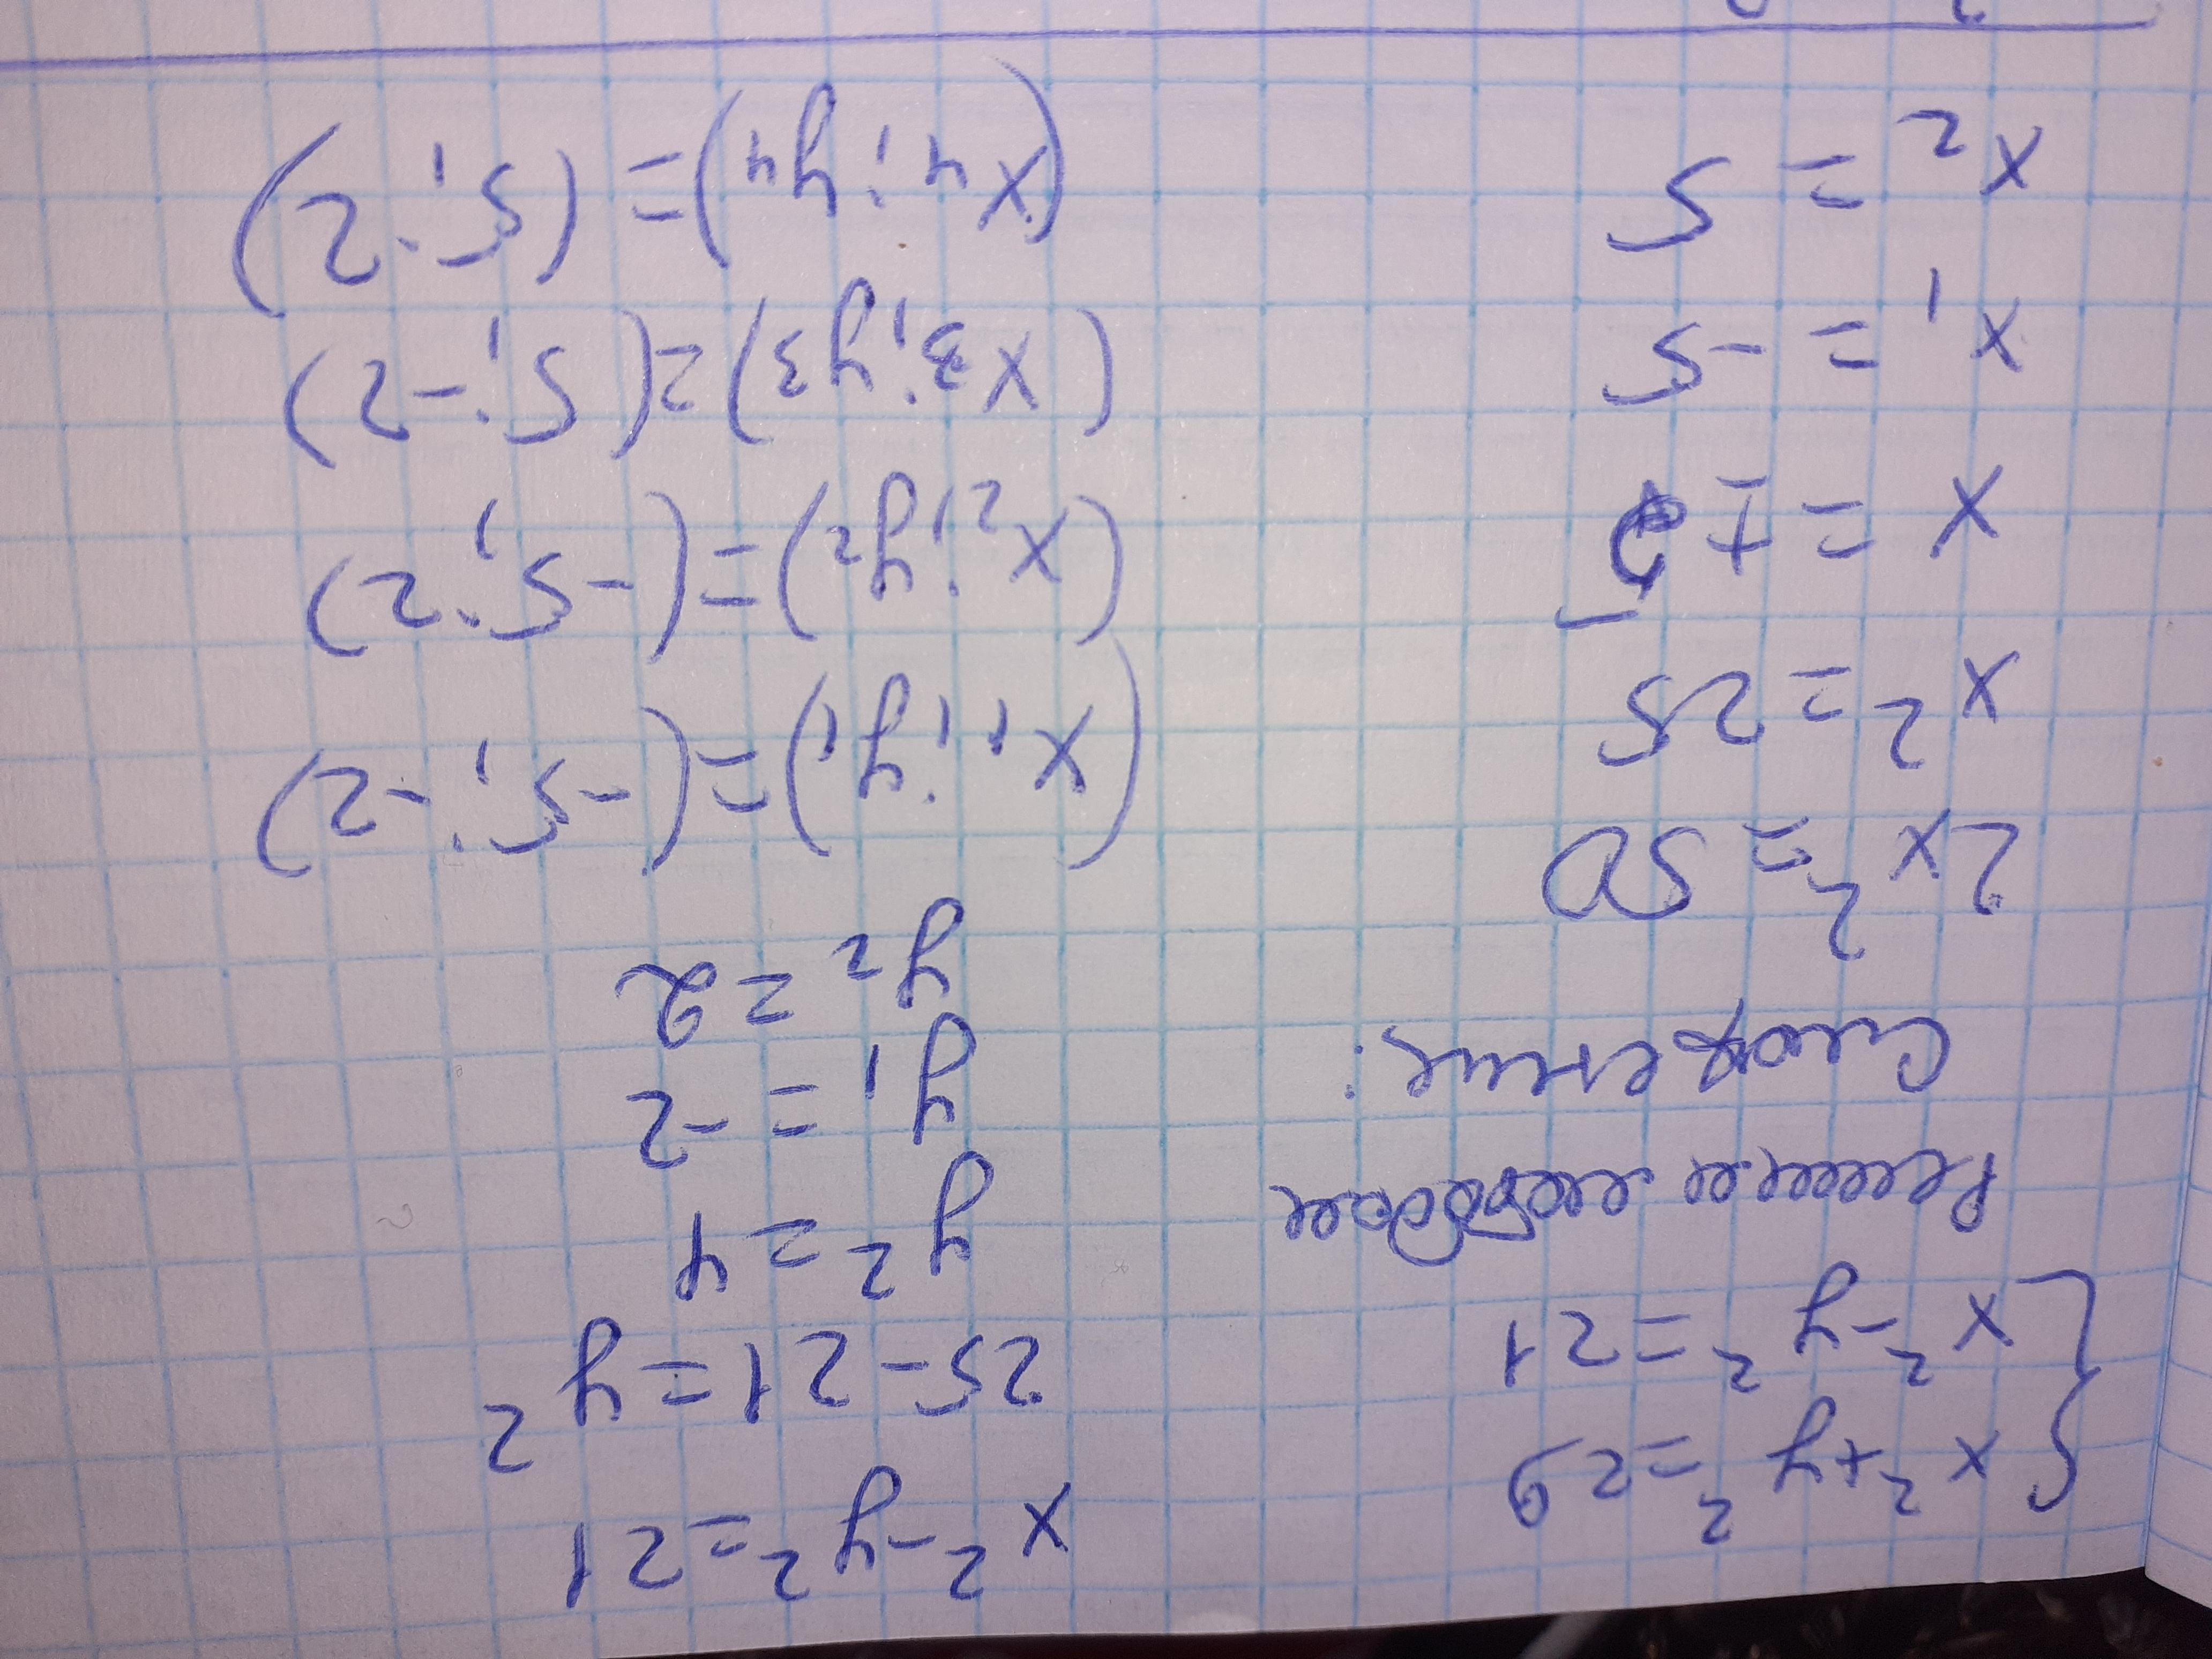 x²+y²=29
x²-y²=21
Решаем методом
Сложения:
2x²=50
x²=25
x=±5
x₁=-5
x₂=5
x²-y²=21
25-21=y²
y²=4
y₁=-2
y₂=2
(x₁;y₁)=(-5;-2)
(x₂;y₂)=(-5;2)
(x₃;y₃)=(5;-2)
(x₄;y₄)=(5;2)